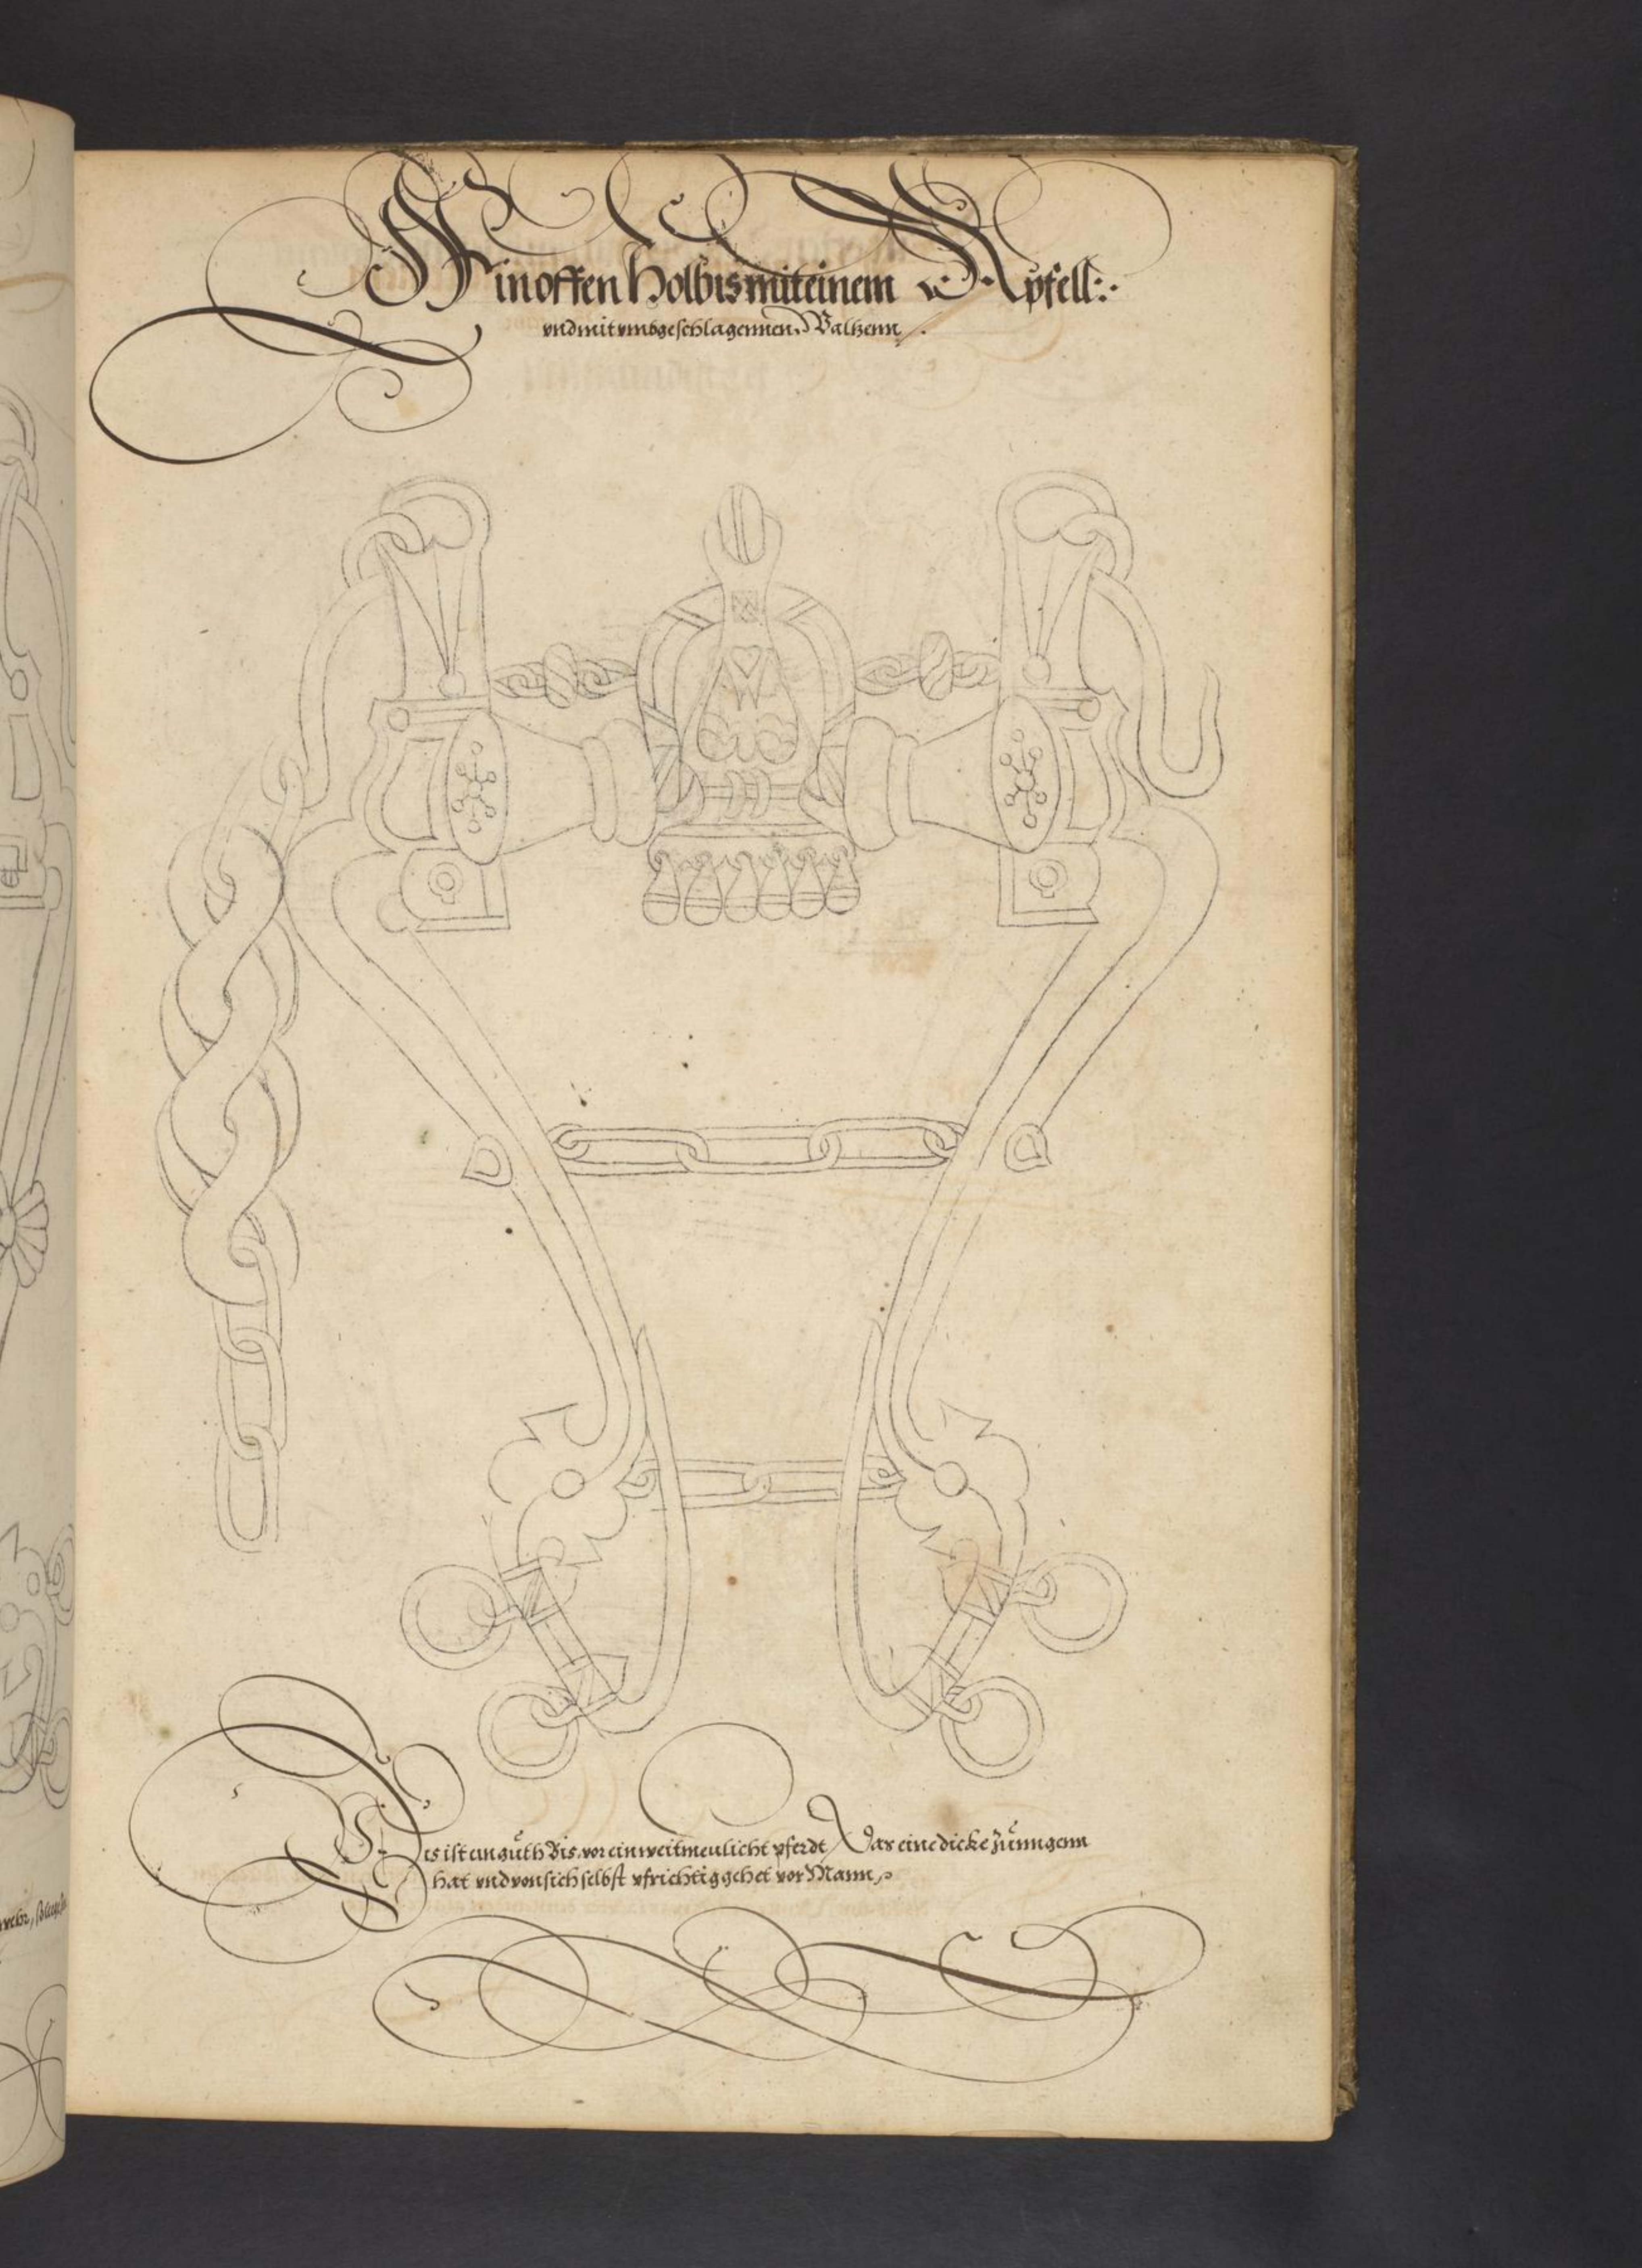 Ein offen Holbis mit einem Apfell:.
vnd mit vmbgeschlagennen Waltzenn.
Dis ist ein guth Bis, vor ein weitmeulicht pferdt, Das eine dicke Zunngenn
hat vnd von sich selbst vfrichtig gehet vor Mann,